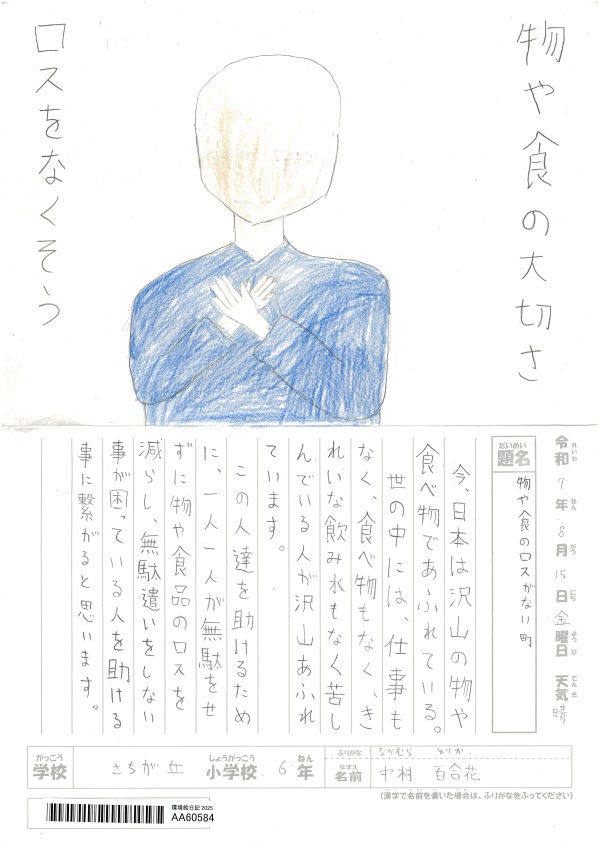 物や食の大切さ
ロスをなくそう
令和7年8月15日金曜日 天気 晴
れいわ ねん がつ にち ようび てんき
だいめい
題名
物や食のロスがない町
今、日本は沢山の物や
食べ物であふれている。
世の中には、仕事も
なく、食べ物もなく、き
れいな飲み水もなく苦し
んでいる人が沢山あふれ
ています。
この人達を助けるため
に、一人一人が無駄をせ
ずに物や食品のロスを
減らし、無駄遣いをしない
事が困っている人を助ける
事に繋がると思います。
がっこう しょうがっこう ねん
学校 さちが丘 小学校 6年
ふりがな なかむら ゆりか
なまえ
名前 中村 百合花
(漢字で名前を書いた場合は、ふりがなをふってください)
環境絵日記 2025
AA60584